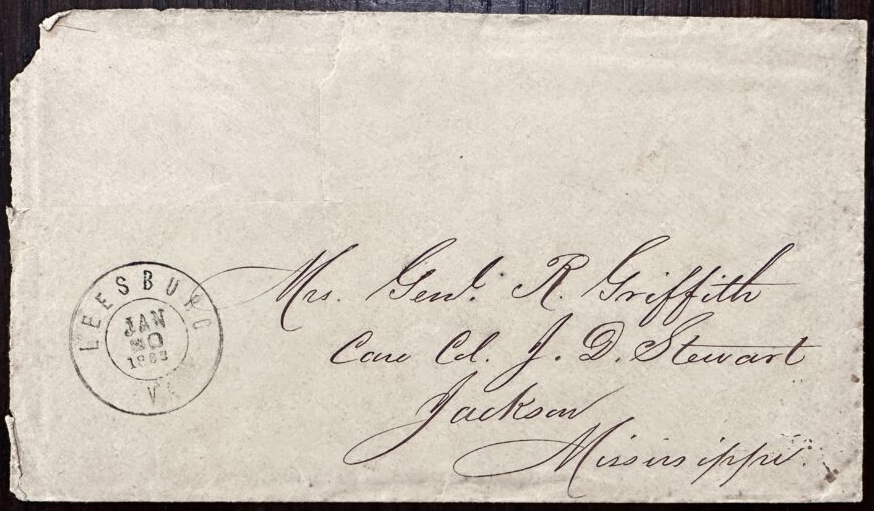 LEESBURG
JAN
30
VA
Mrs. Genl. R. Griffith
Care Col. J. D. Stewart
Jackson
Mississippi.